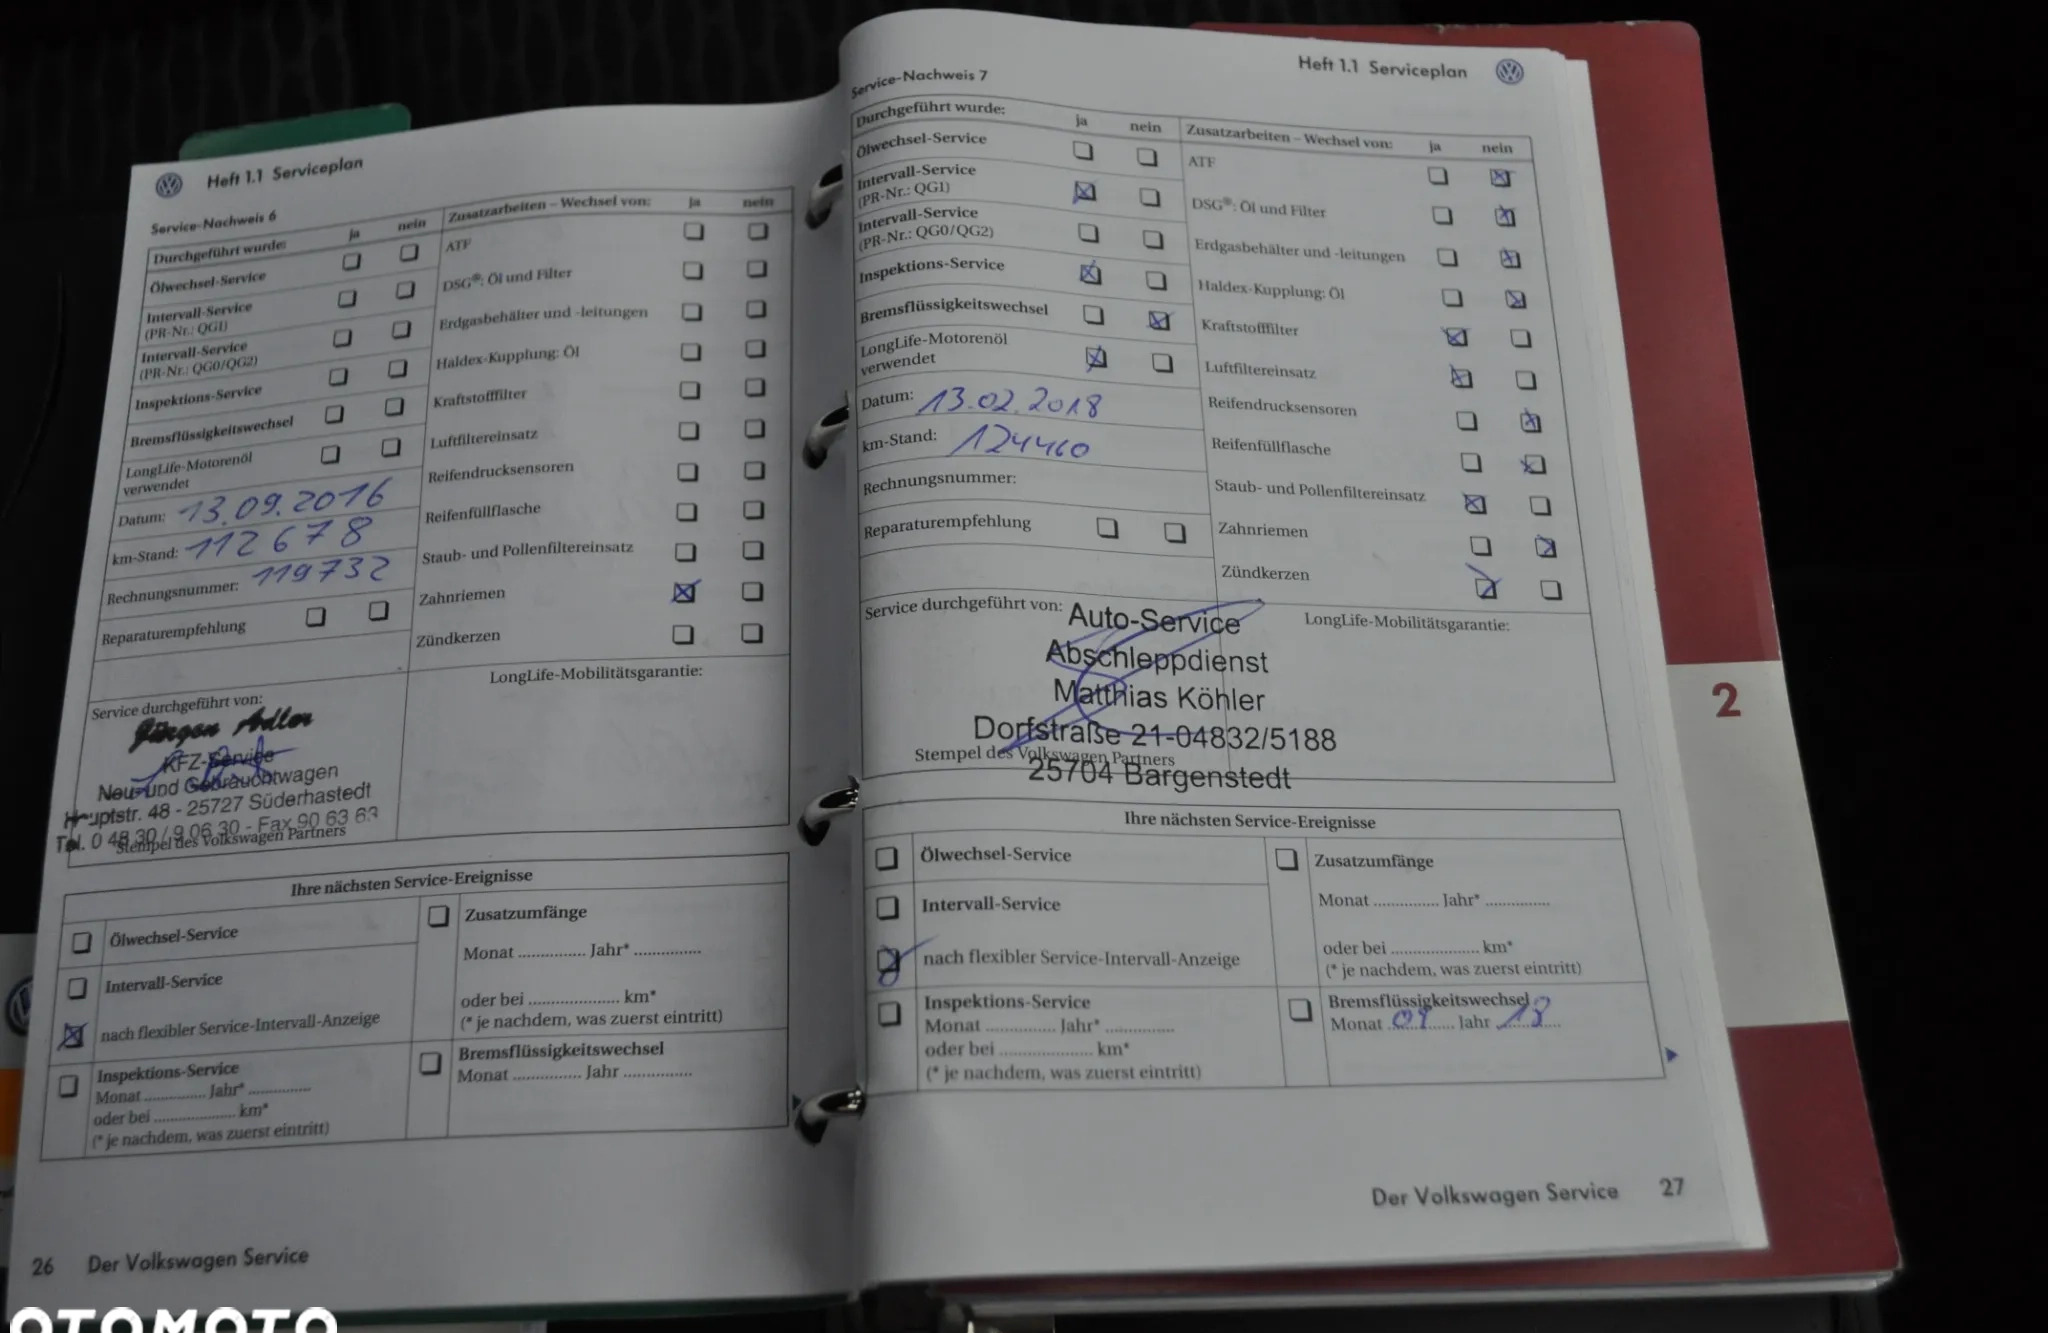 Heft 1.1 Serviceplan
Service-Nachweis 6
Durchgeführt wurde: ja nein
Ölwechsel-Service
Intervall-Service
(PR-Nr.: QG1)
Intervall-Service
(PR-Nr.: QG0/QG2)
Inspektions-Service
Bremsflüssigkeitswechsel
LongLife-Motorenöl
verwendet
Datum: 13.09.2016
km-Stand: 112678
Rechnungsnummer: 119732
Reparaturempfehlung
Zusatzarbeiten – Wechsel von: ja nein
ATF
DSG®: Öl und Filter
Erdgasbehälter und -leitungen
Haldex-Kupplung: Öl
Kraftstofffilter
Luftfiltereinsatz
Reifendrucksensoren
Reifenfüllflasche
Staub- und Pollenfiltereinsatz
Zahnriemen
Zündkerzen
Service durchgeführt von:
Jürgen Adler
KFZ-Service
Neu- und Gebrauchtwagen
Hauptstr. 48 - 25727 Süderhastedt
Tel. 0 48 30 / 9 06 30 - Fax 90 63 63
Stempel des Volkswagen Partners
LongLife-Mobilitätsgarantie:
Ihre nächsten Service-Ereignisse
Ölwechsel-Service
Intervall-Service
nach flexibler Service-Intervall-Anzeige
Inspektions-Service
Monat ............... Jahr* ...............
oder bei ..................... km*
(* je nachdem, was zuerst eintritt)
Zusatzumfänge
Monat ............... Jahr* ...............
oder bei ..................... km*
(* je nachdem, was zuerst eintritt)
Bremsflüssigkeitswechsel
Monat ............... Jahr ...............
26 Der Volkswagen Service
OTOMOTO
Heft 1.1 Serviceplan
Service-Nachweis 7
Durchgeführt wurde: ja nein
Ölwechsel-Service
Intervall-Service
(PR-Nr.: QG1)
Intervall-Service
(PR-Nr.: QG0/QG2)
Inspektions-Service
Bremsflüssigkeitswechsel
LongLife-Motorenöl
verwendet
Datum: 13.02.2018
km-Stand: 124460
Rechnungsnummer:
Reparaturempfehlung
Zusatzarbeiten – Wechsel von: ja nein
ATF
DSG®: Öl und Filter
Erdgasbehälter und -leitungen
Haldex-Kupplung: Öl
Kraftstofffilter
Luftfiltereinsatz
Reifendrucksensoren
Reifenfüllflasche
Staub- und Pollenfiltereinsatz
Zahnriemen
Zündkerzen
Service durchgeführt von:
Auto-Service
Abschleppdienst
Matthias Köhler
Dorfstraße 21-04832/5188
25704 Bargenstedt
Stempel des Volkswagen Partners
LongLife-Mobilitätsgarantie:
Ihre nächsten Service-Ereignisse
Ölwechsel-Service
Intervall-Service
nach flexibler Service-Intervall-Anzeige
Inspektions-Service
Monat ............... Jahr* ...............
oder bei ..................... km*
(* je nachdem, was zuerst eintritt)
Zusatzumfänge
Monat ............... Jahr* ...............
oder bei ..................... km*
(* je nachdem, was zuerst eintritt)
Bremsflüssigkeitswechsel
Monat 09 Jahr 18
Der Volkswagen Service 27
2